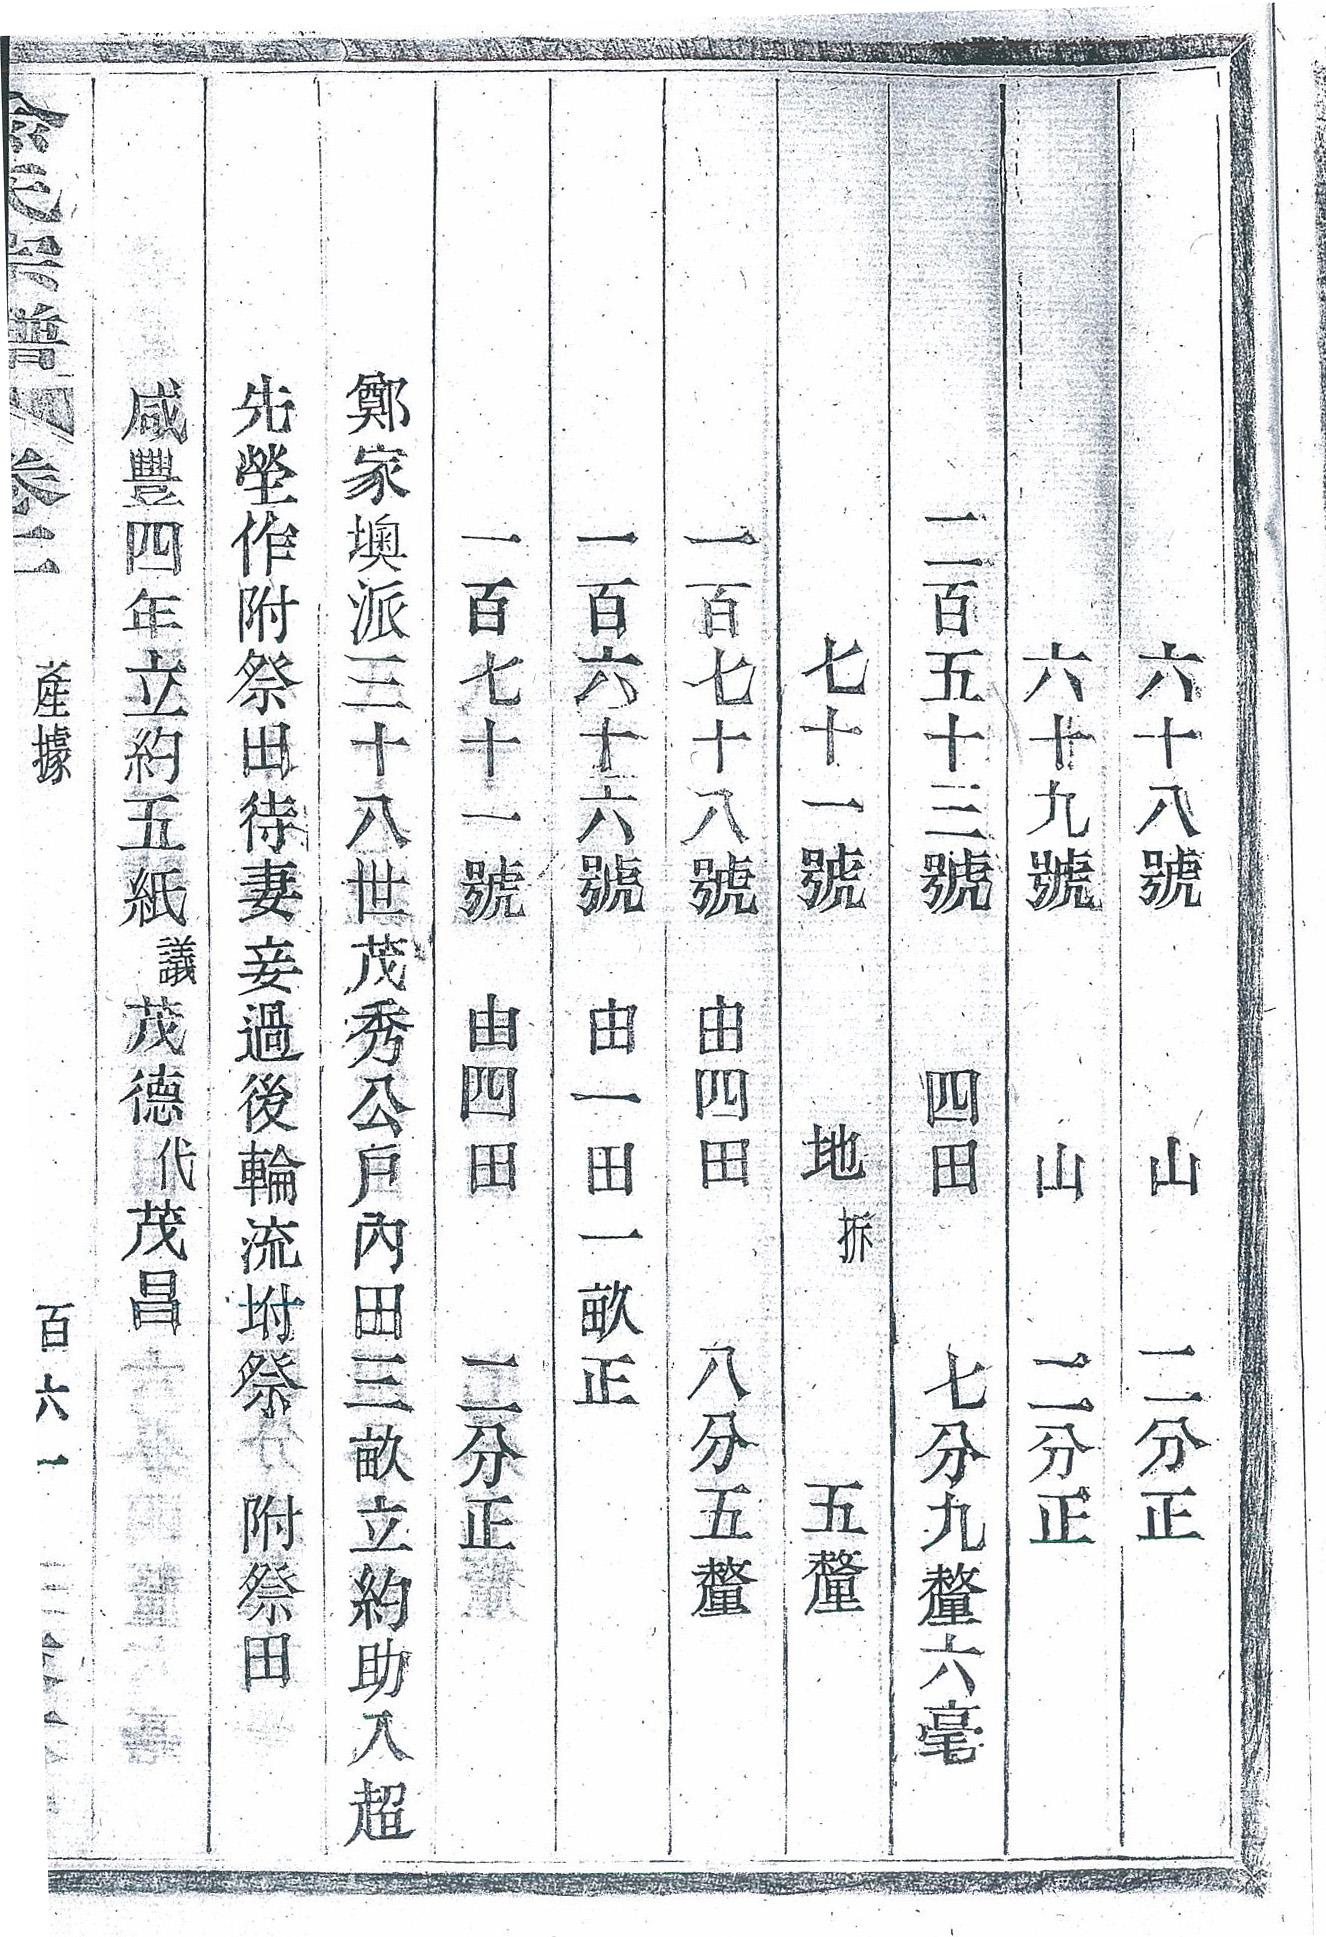 六十八號 山 二分正
六十九號 山 二分正
二百五十三號 四田 七分九釐六毫
七十一號 地 拆 五釐
一百七十八號 由四田 八分五釐
一百六十六號 由一田一畝正
一百七十一號 由四田 二分正
鄭家墺派三十八世茂秀公戶內田三畝立約助入超
先塋作附祭田待妻妾過後輪流坿祭 附祭田
咸豐四年立約五紙 議 茂德 代 茂昌
氏宗譜 卷二 產據 百六一